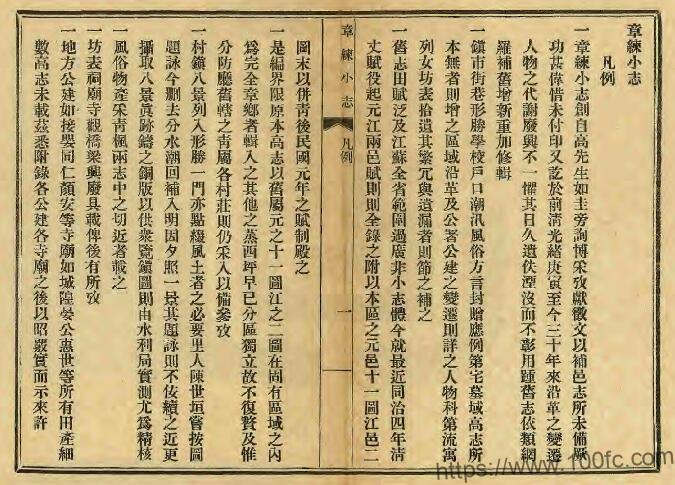 章練小志
凡例
一章練小志創自高先生如圭旁詢博采攷獻徵文以補邑志所未備厥
功甚偉惜未付印又訖於前淸光緖庚寅至今三十年來沿革之變遷
人物之代謝廢興不一懼其日久遺佚湮沒而不彰用踵舊志依類網
羅補舊增新重加修輯
一鎭市街巷形勝學校戶口潮汛風俗方言封贈應例第宅墓域高志所
本無者則增之區域沿革及公署公建之變遷則詳之人物科第流寓
列女坊表拾遺其繁冗與遺漏者則節之補之
一舊志田賦泛及江蘇全省範圍過廣非小志體今就最近同治四年淸
丈賦役起元江兩邑賦則則全錄之附以本區之元邑十一圖江邑二
章練小志
凡例
一
圖末以併靑後民國元年之賦制殿之
一是編界限原本高志以舊屬元之十一圖江之二圖在固有區域之內
爲完全章鄕者輯入之其他之蒸西坪早已分區獨立故不復贅及惟
分防廳舊轄之靑屬各村莊則仍采入以備參攷
一村鎭八景列入形勝一門亦點綴風土者之必要里人陳世垣嘗按圖
題詠今刪去分水潮回補入明因夕照一景其題詠則不佞續之近更
攝取八景眞跡鑄之銅版以供衆覽鎭圖則由水利局實測尤爲精核
一風俗物產采靑楓兩志中之切近者載之
一坊表祠廟寺觀橋梁興廢具載俾後有所攷
一地方公建如接嬰同仁顏安等寺廟如城隍晏公惠世等所有田產細
數高志未載茲悉附錄各公建各寺廟之後以昭嚴實而示來許
https://www.100fc.com